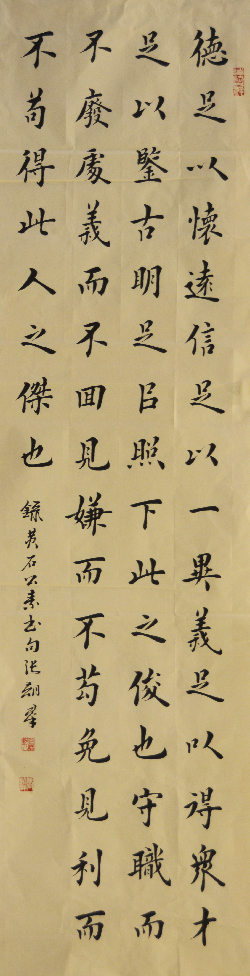 德足以懷遠信足以一異義足以得衆才
足以鑒古明足以照下此之俊也守職而
不廢處義而不回見嫌而不苟免見利而
不苟得此人之傑也
錄黃石公素書句張